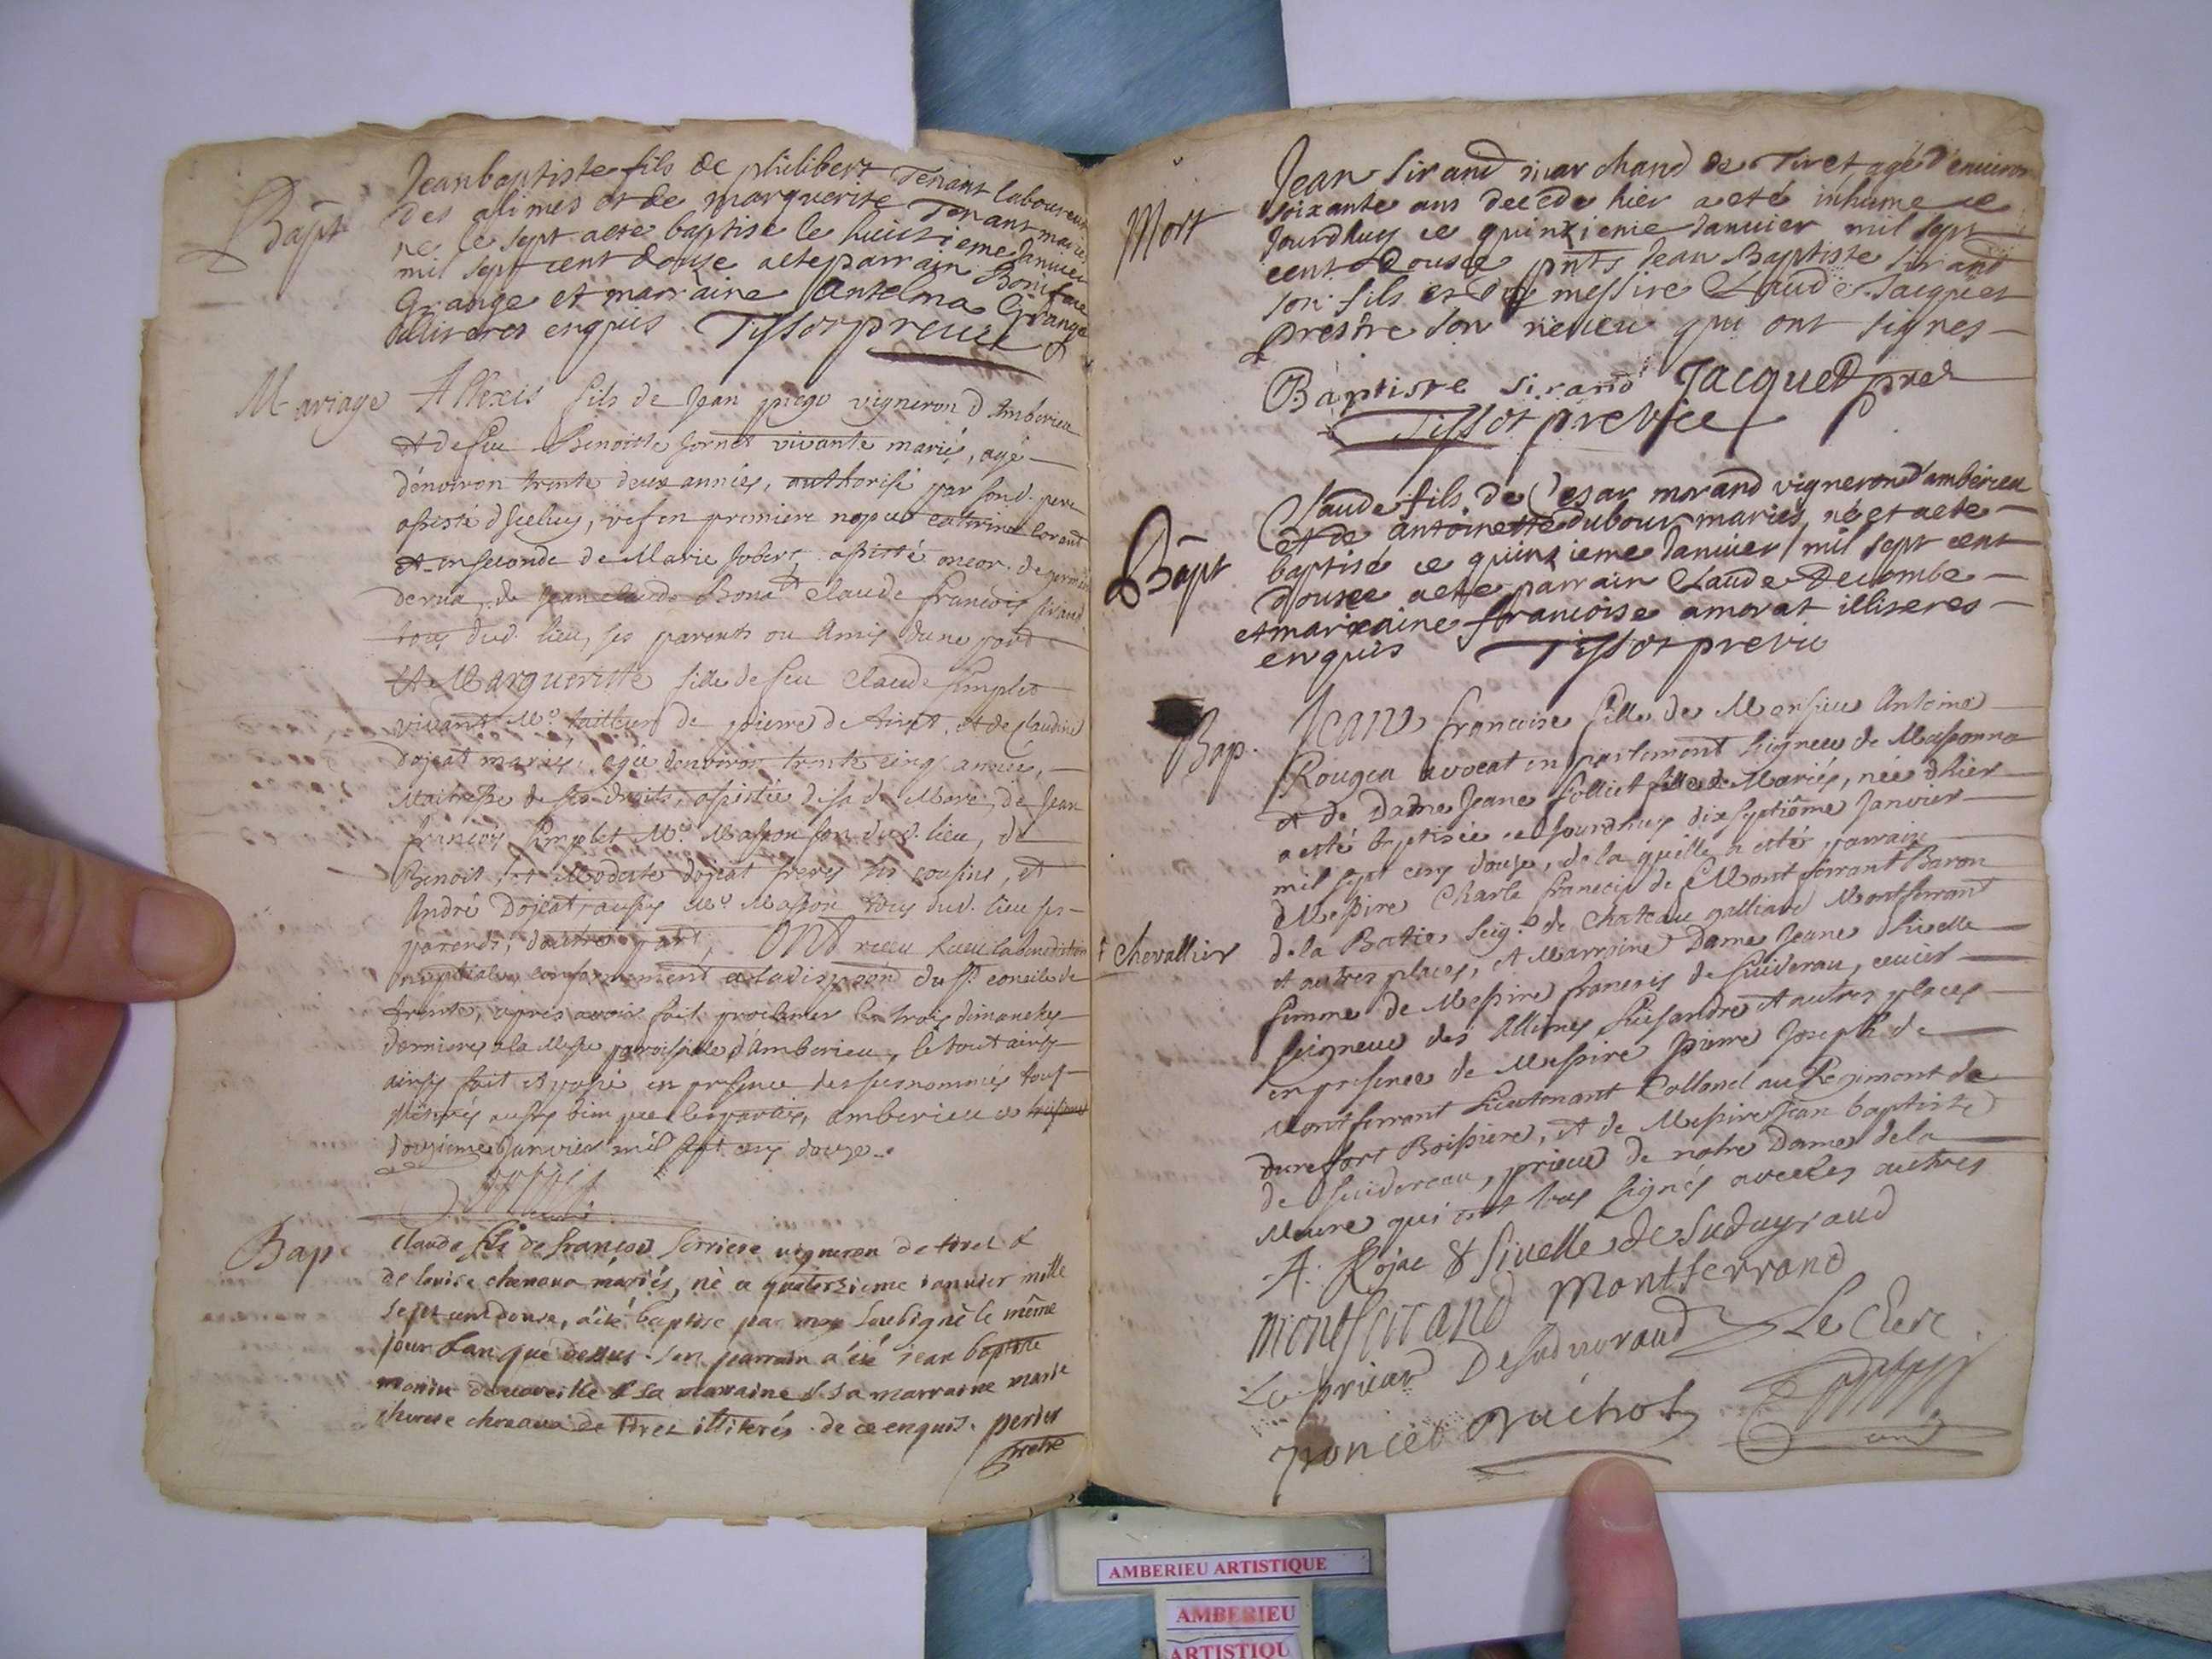 Bapt
Jeanbaptiste fils de philibert Tenant laboureur
des alimes et de marguerite Tenant maries
ne le sept a ete baptise le huictieme Janvier
mil sept cent douse a ete parrain Boniface
Grange et marraine Antelma Grange
illiteres enquis Tissot previc
Mariage
Allexis fils de Jean vigneron d'Amberieu
et de feu Benoitte Jornet vivante mariés, agé
d'environ trente deux années, authorisé par son d. pere
assisté d'Jceluy, vef en premiere nopces catrine
et en seconde de Marie Jobert, assisté encor. de
de Jean claude Bona et Claude francois Sirand
tous dud. lieu, ses parents ou Amis dune part
Et Margueritte fille de feu Claude Simplet
vivant Me. tailleur de pierre de tiret, et de Claudine
Dojeat mariés, agée denviron trente cinq années,
Maitresse de ses droits, assistée de sa d. Mere, de Jean
francois Simplet Me. Masson son dud. lieu, de
Benoit et Modeste dojeat freres ses cousins, et
André Dojeat aussy Me. Masson tous dud. lieu ses
parents, dautre part, Ont receu la benediction
nuptiale, conformement a la du St. concile de
trente, apres avoir fait proclamer les trois dimanches
derniers a la Messe paroissiale d'Amberieu, le tout ainsy
ainsy fait et passé en presence des susnommés tous
illiterés aussy bien que les parties, amberieu ce
douzieme Janvier mil sept cens douze
Bap
Claude fils de francois ferriere vigneron de tiret &
de louise chenava mariés, né ce quatorzieme ianvier mille
sept cent douse, a été baptisé par moy soubsigné le même
jour & an que dessus. son parrain a été jean baptiste
de vareille & sa marraine & sa marraine marie
therese chenava de tiret illiterés de ce enquis. perier
pretre
Mort
Jean Sirand marchand de Tiret, agé d'environ
soixante ans decede hier a eté inhume ce
Jourdhuy ce quinzieme Janvier mil sept
cent Douse pnts Jean Baptiste Sirand
son fils et messire Claude Jacquet
prestre son neveu qui ont signes
Baptiste sirand Jacquet pret
Tissot previce
Bapt
Claude fils de Cesar morand vigneron d'amberieu
et de antoinette dubour maries, né et a ete
baptisé ce quinzieme Janvier mil sept cent
douse a ete parrain Claude Decombe
et marraine francoise amorat illiteres
enquis Tissot previc
Bap.
Jeane francoise fille de Monsieur Antoine
Rougea avocat en parlement Seigneur de Massonna
et de Dame Jeane folliet fille de Mariés, née d'hier
a esté baptisée ce Jourdhuy dix septiême Janvier
mil sept cens douze, de la quelle a esté parrain
Messire Charle francois de Montferrant Baron
+ Chevallier
de la Batie, Seigr. de Chateau galliard Montferrant
et autres places, et Marraine Dame Jeane Livelle
femme de Messire francois de
Seigneur des Allimes et autres places
en presence de Messire Pierre Joseph de
Montferrant Lieutenant Collonel au Regiment de
dureffort Boissiere, et de Messire Jean baptiste
de Suidereau, prieur de notre Dame de la
Meure qui ont tous signés avec les autres
A. Rojac & Livelle de Suduyraud
Montferrand Montferrand
Le prieur Desuduyraud Le Clerc
poncet Orachot
curé
AMBERIEU ARTISTIQUE
AMBERIEU
ARTISTIQU